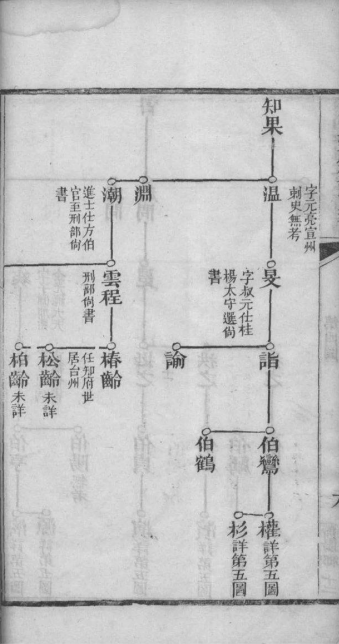 知果
温
字元亮宣州
刺史無考
淵
潮
進士仕方伯
官至刑部尙
書
旻
字叔元仕桂
楊太守選尙
書
雲程
刑部尙書
詣
諭
椿齡
任知府世
居台州
松齡 未詳
柏齡 未詳
伯鸞
伯鶴
權 詳第五圖
杉 詳第五圖